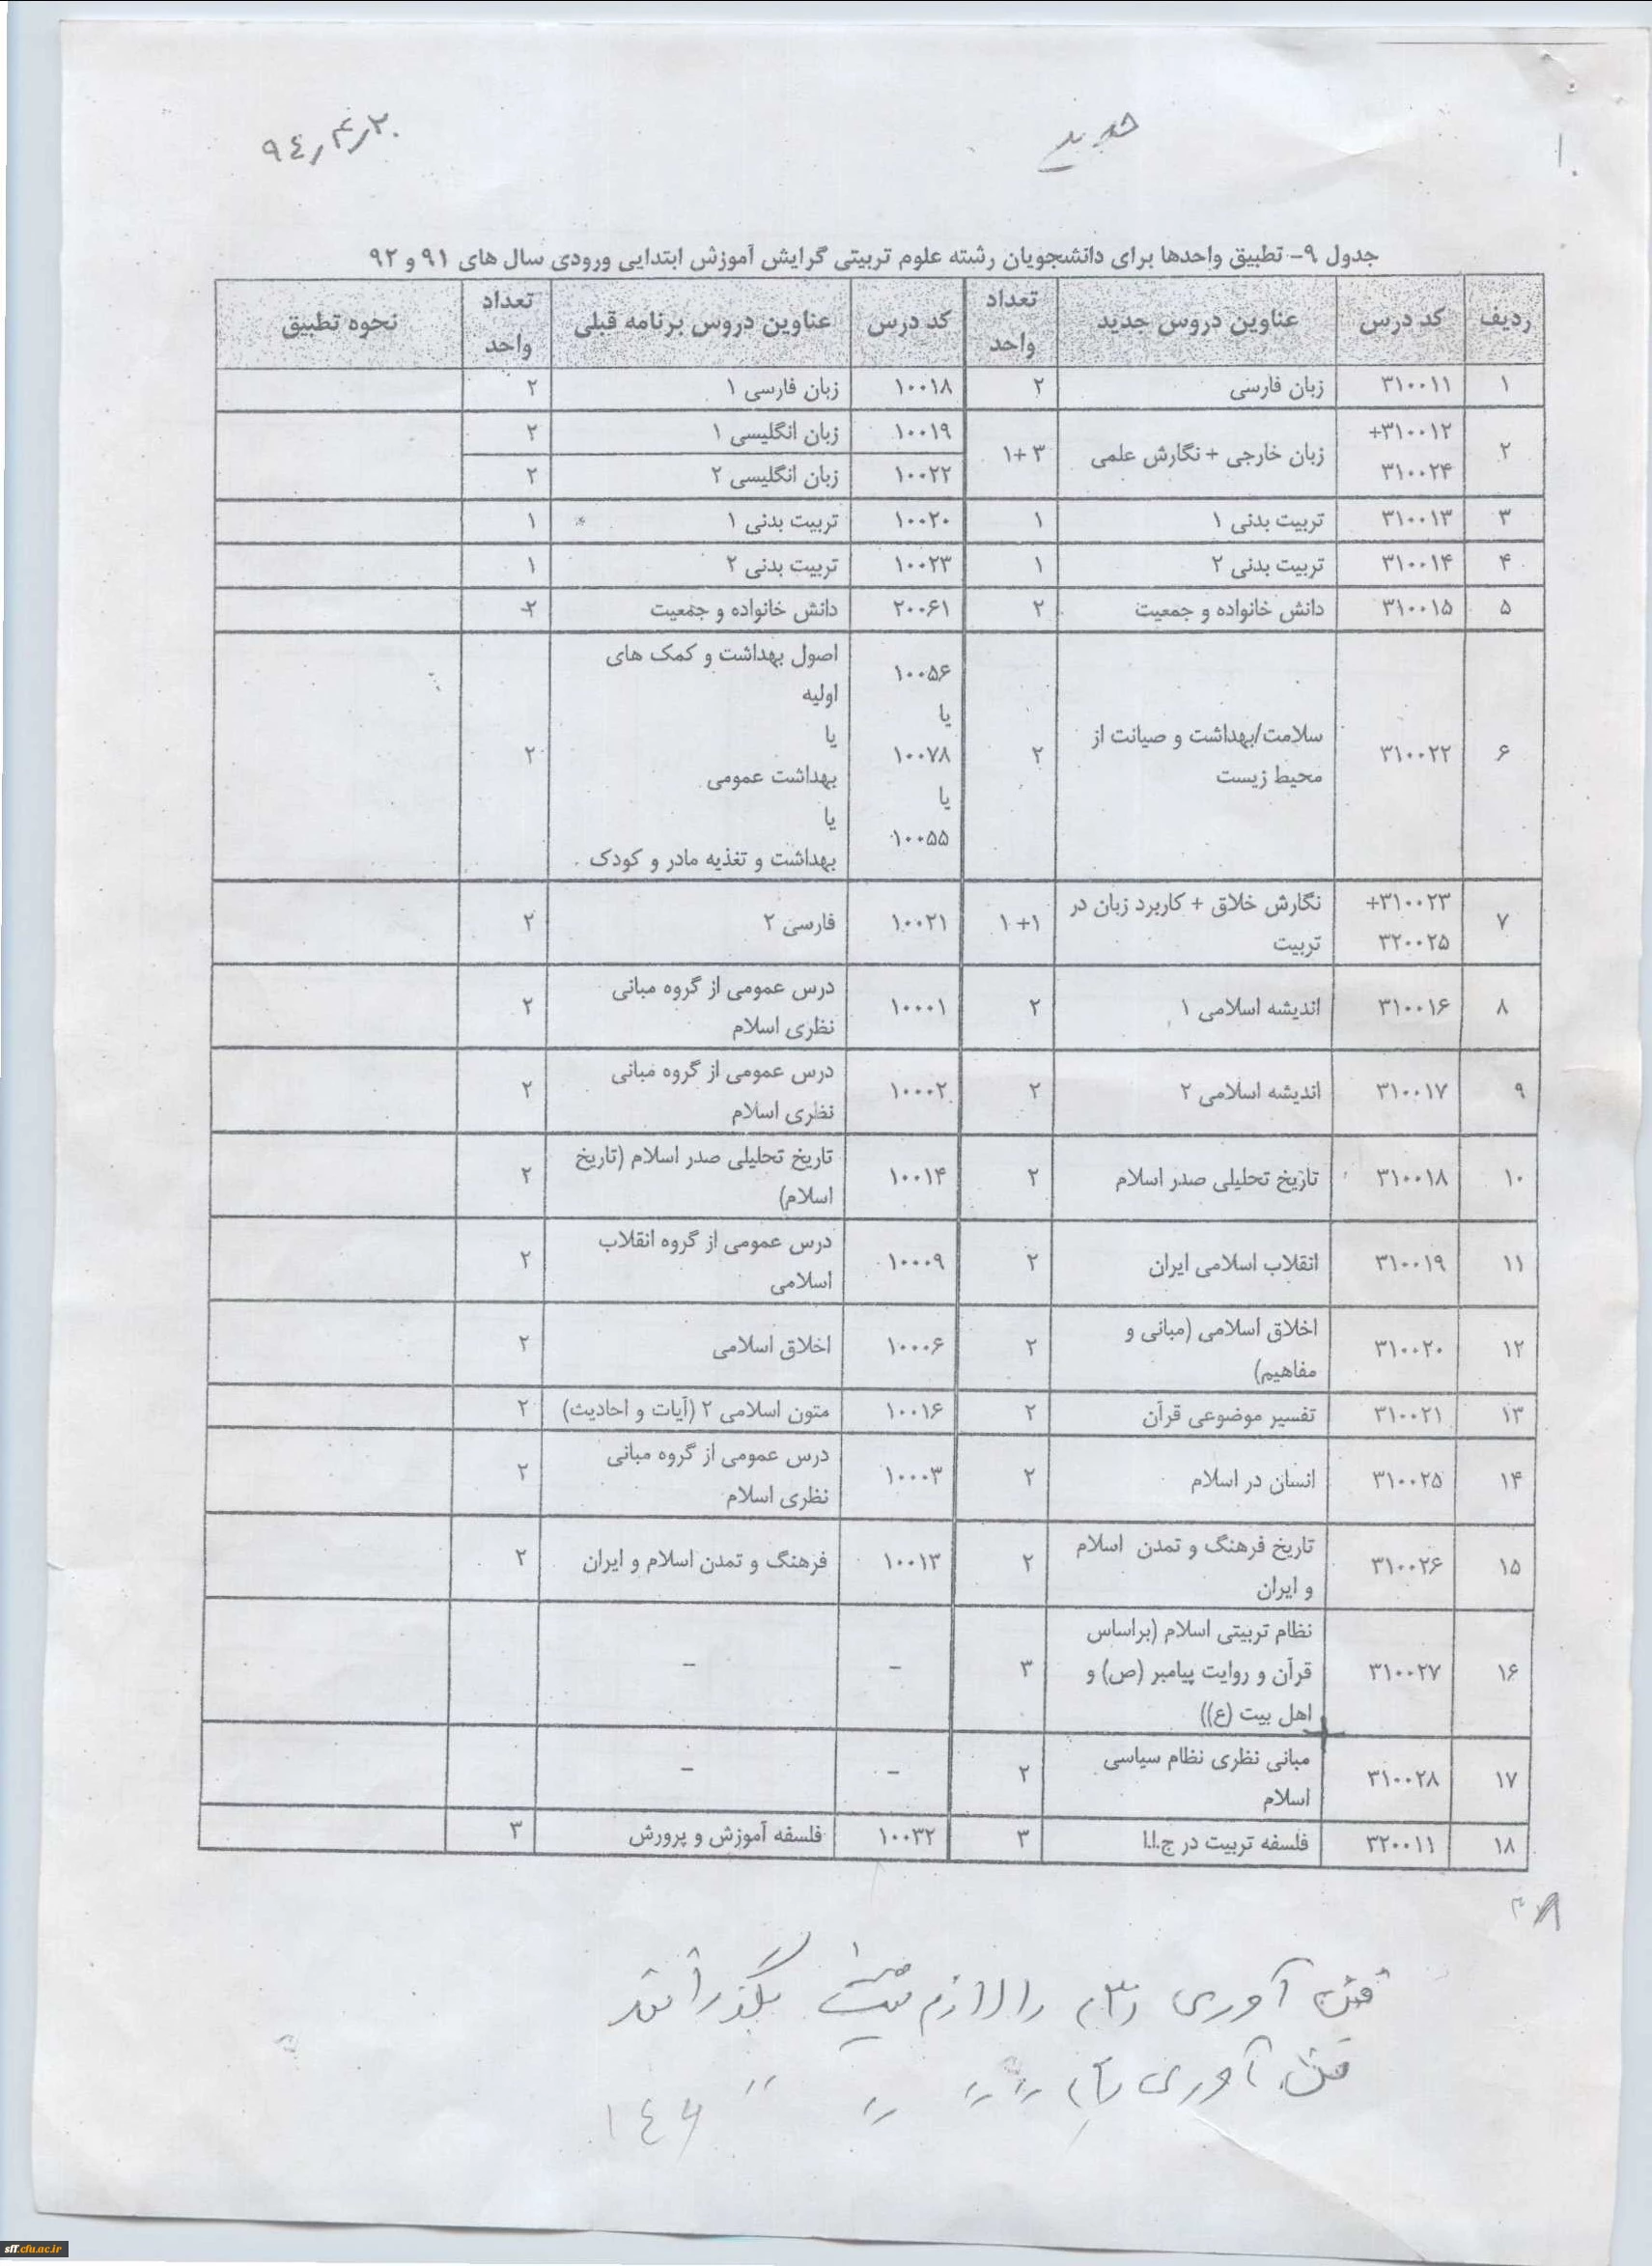 ۹۴٫۴٫۲۰
جدید
جدول ۹- تطبیق واحدها برای دانشجویان رشته علوم تربیتی گرایش آموزش ابتدایی ورودی سال های ۹۱ و ۹۲
ردیف کد درس عناوین دروس جدید تعداد واحد کد درس عناوین دروس برنامه قبلی تعداد واحد نحوه تطبیق
۱ ۳۱۰۰۱۱ زبان فارسی ۲ ۱۰۰۱۸ زبان فارسی ۱ ۲
۲ ۳۱۰۰۱۲+ ۳۱۰۰۲۴ زبان خارجی + نگارش علمی ۳+۱ ۱۰۰۱۹ زبان انگلیسی ۱ ۲
۱۰۰۲۲ زبان انگلیسی ۲ ۲
۳ ۳۱۰۰۱۳ تربیت بدنی ۱ ۱ ۱۰۰۲۰ تربیت بدنی ۱ ۱
۴ ۳۱۰۰۱۴ تربیت بدنی ۲ ۱ ۱۰۰۲۳ تربیت بدنی ۲ ۱
۵ ۳۱۰۰۱۵ دانش خانواده و جمعیت ۲ ۲۰۰۶۱ دانش خانواده و جمعیت ۲
۶ ۳۱۰۰۲۲ سلامت/بهداشت و صیانت از محیط زیست ۲ ۱۰۰۵۶ یا ۱۰۰۷۸ یا ۱۰۰۵۵ اصول بهداشت و کمک های اولیه یا بهداشت عمومی یا بهداشت و تغذیه مادر و کودک ۲
۷ ۳۱۰۰۲۳+ ۳۲۰۰۲۵ نگارش خلاق + کاربرد زبان در تربیت ۱+۱ ۱۰۰۲۱ فارسی ۲ ۲
۸ ۳۱۰۰۱۶ اندیشه اسلامی ۱ ۲ ۱۰۰۰۱ درس عمومی از گروه مبانی نظری اسلام ۲
۹ ۳۱۰۰۱۷ اندیشه اسلامی ۲ ۲ ۱۰۰۰۲ درس عمومی از گروه مبانی نظری اسلام ۲
۱۰ ۳۱۰۰۱۸ تاریخ تحلیلی صدر اسلام ۲ ۱۰۰۱۴ تاریخ تحلیلی صدر اسلام (تاریخ اسلام) ۲
۱۱ ۳۱۰۰۱۹ انقلاب اسلامی ایران ۲ ۱۰۰۰۹ درس عمومی از گروه انقلاب اسلامی ۲
۱۲ ۳۱۰۰۲۰ اخلاق اسلامی (مبانی و مفاهیم) ۲ ۱۰۰۰۶ اخلاق اسلامی ۲
۱۳ ۳۱۰۰۲۱ تفسیر موضوعی قرآن ۲ ۱۰۰۱۶ متون اسلامی ۲ (آیات و احادیث) ۲
۱۴ ۳۱۰۰۲۵ انسان در اسلام ۲ ۱۰۰۰۳ درس عمومی از گروه مبانی نظری اسلام ۲
۱۵ ۳۱۰۰۲۶ تاریخ فرهنگ و تمدن اسلام و ایران ۲ ۱۰۰۱۳ فرهنگ و تمدن اسلام و ایران ۲
۱۶ ۳۱۰۰۲۷ نظام تربیتی اسلام (براساس قرآن و روایت پیامبر (ص) و اهل بیت (ع)) ۳ - -
۱۷ ۳۱۰۰۲۸ مبانی نظری نظام سیاسی اسلام ۲ - -
۱۸ ۳۲۰۰۱۱ فلسفه تربیت در ج.ا.ا ۳ ۱۰۰۳۲ فلسفه آموزش و پرورش ۳
فن آوری (۳) را لازم نیست بگذرانند
فن آوری
sff.cfu.ac.ir